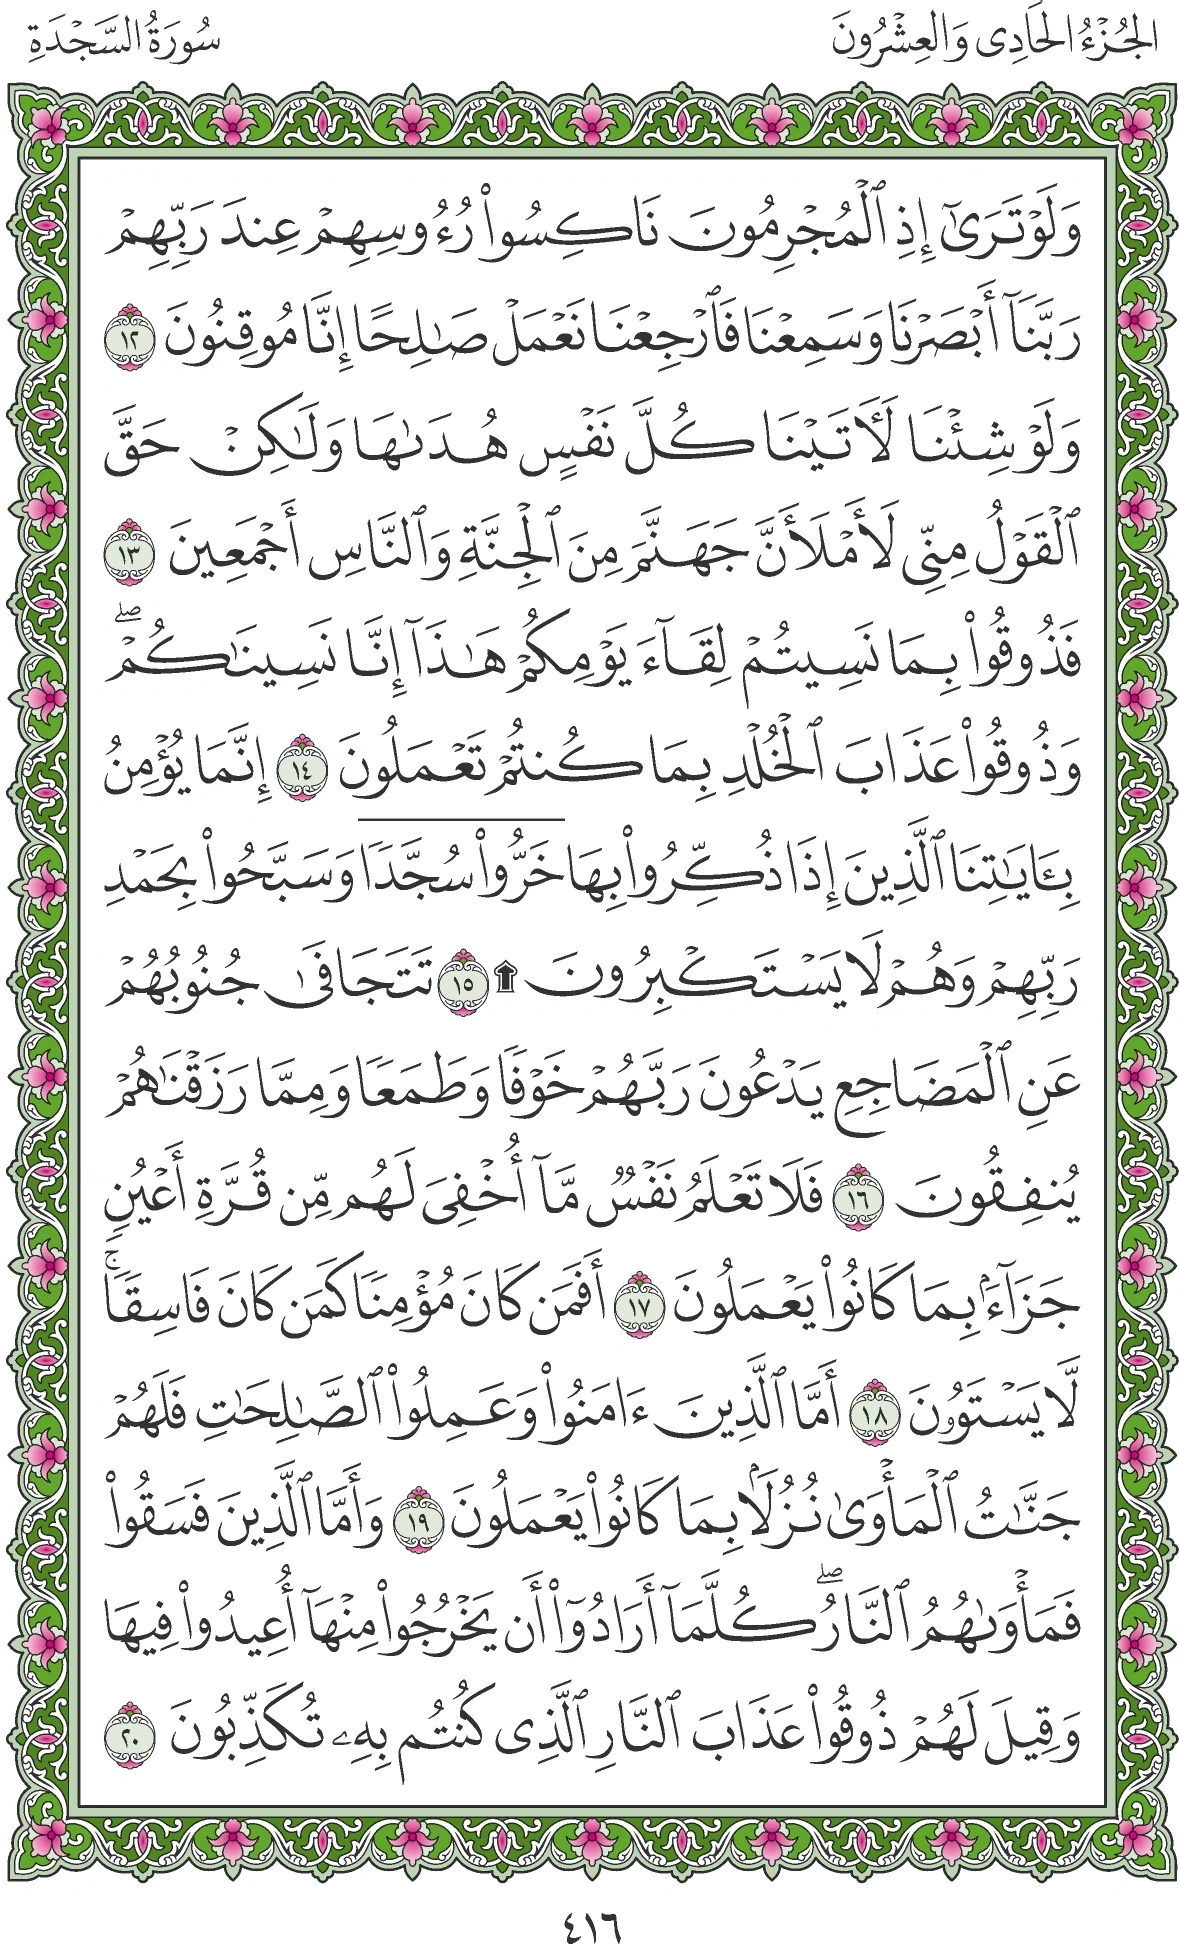 الجُزْءُ الحَادِي وَالعِشْرُونَ
سُورَةُ السَّجْدَةِ
وَلَوْ تَرَىٰٓ إِذِ ٱلْمُجْرِمُونَ نَاكِسُوا۟ رُءُوسِهِمْ عِندَ رَبِّهِمْ
رَبَّنَآ أَبْصَرْنَا وَسَمِعْنَا فَٱرْجِعْنَا نَعْمَلْ صَـٰلِحًا إِنَّا مُوقِنُونَ ١٢
وَلَوْ شِئْنَا لَـَٔاتَيْنَا كُلَّ نَفْسٍ هُدَىٰهَا وَلَـٰكِنْ حَقَّ
ٱلْقَوْلُ مِنِّى لَأَمْلَأَنَّ جَهَنَّمَ مِنَ ٱلْجِنَّةِ وَٱلنَّاسِ أَجْمَعِينَ ١٣
فَذُوقُوا۟ بِمَا نَسِيتُمْ لِقَآءَ يَوْمِكُمْ هَـٰذَآ إِنَّا نَسِينَـٰكُمْ ۖ
وَذُوقُوا۟ عَذَابَ ٱلْخُلْدِ بِمَا كُنتُمْ تَعْمَلُونَ ١٤ إِنَّمَا يُؤْمِنُ
بِـَٔايَـٰتِنَا ٱلَّذِينَ إِذَا ذُكِّرُوا۟ بِهَا خَرُّوا۟ سُجَّدًا وَسَبَّحُوا۟ بِحَمْدِ
رَبِّهِمْ وَهُمْ لَا يَسْتَكْبِرُونَ ۩ ١٥ تَتَجَافَىٰ جُنُوبُهُمْ
عَنِ ٱلْمَضَاجِعِ يَدْعُونَ رَبَّهُمْ خَوْفًا وَطَمَعًا وَمِمَّا رَزَقْنَـٰهُمْ
يُنفِقُونَ ١٦ فَلَا تَعْلَمُ نَفْسٌ مَّآ أُخْفِىَ لَهُم مِّن قُرَّةِ أَعْيُنٍ
جَزَآءًۢ بِمَا كَانُوا۟ يَعْمَلُونَ ١٧ أَفَمَن كَانَ مُؤْمِنًا كَمَن كَانَ فَاسِقًا ۚ
لَّا يَسْتَوُۥنَ ١٨ أَمَّا ٱلَّذِينَ ءَامَنُوا۟ وَعَمِلُوا۟ ٱلصَّـٰلِحَـٰتِ فَلَهُمْ
جَنَّـٰتُ ٱلْمَأْوَىٰ نُزُلًۢا بِمَا كَانُوا۟ يَعْمَلُونَ ١٩ وَأَمَّا ٱلَّذِينَ فَسَقُوا۟
فَمَأْوَىٰهُمُ ٱلنَّارُ ۖ كُلَّمَآ أَرَادُوٓا۟ أَن يَخْرُجُوا۟ مِنْهَآ أُعِيدُوا۟ فِيهَا
وَقِيلَ لَهُمْ ذُوقُوا۟ عَذَابَ ٱلنَّارِ ٱلَّذِى كُنتُم بِهِۦ تُكَذِّبُونَ ٢٠
٤١٦